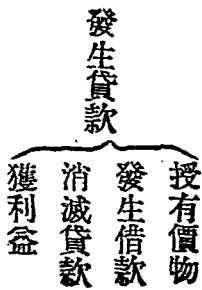 發生貸款
授有價物
發生借款
消滅貸款
獲利益